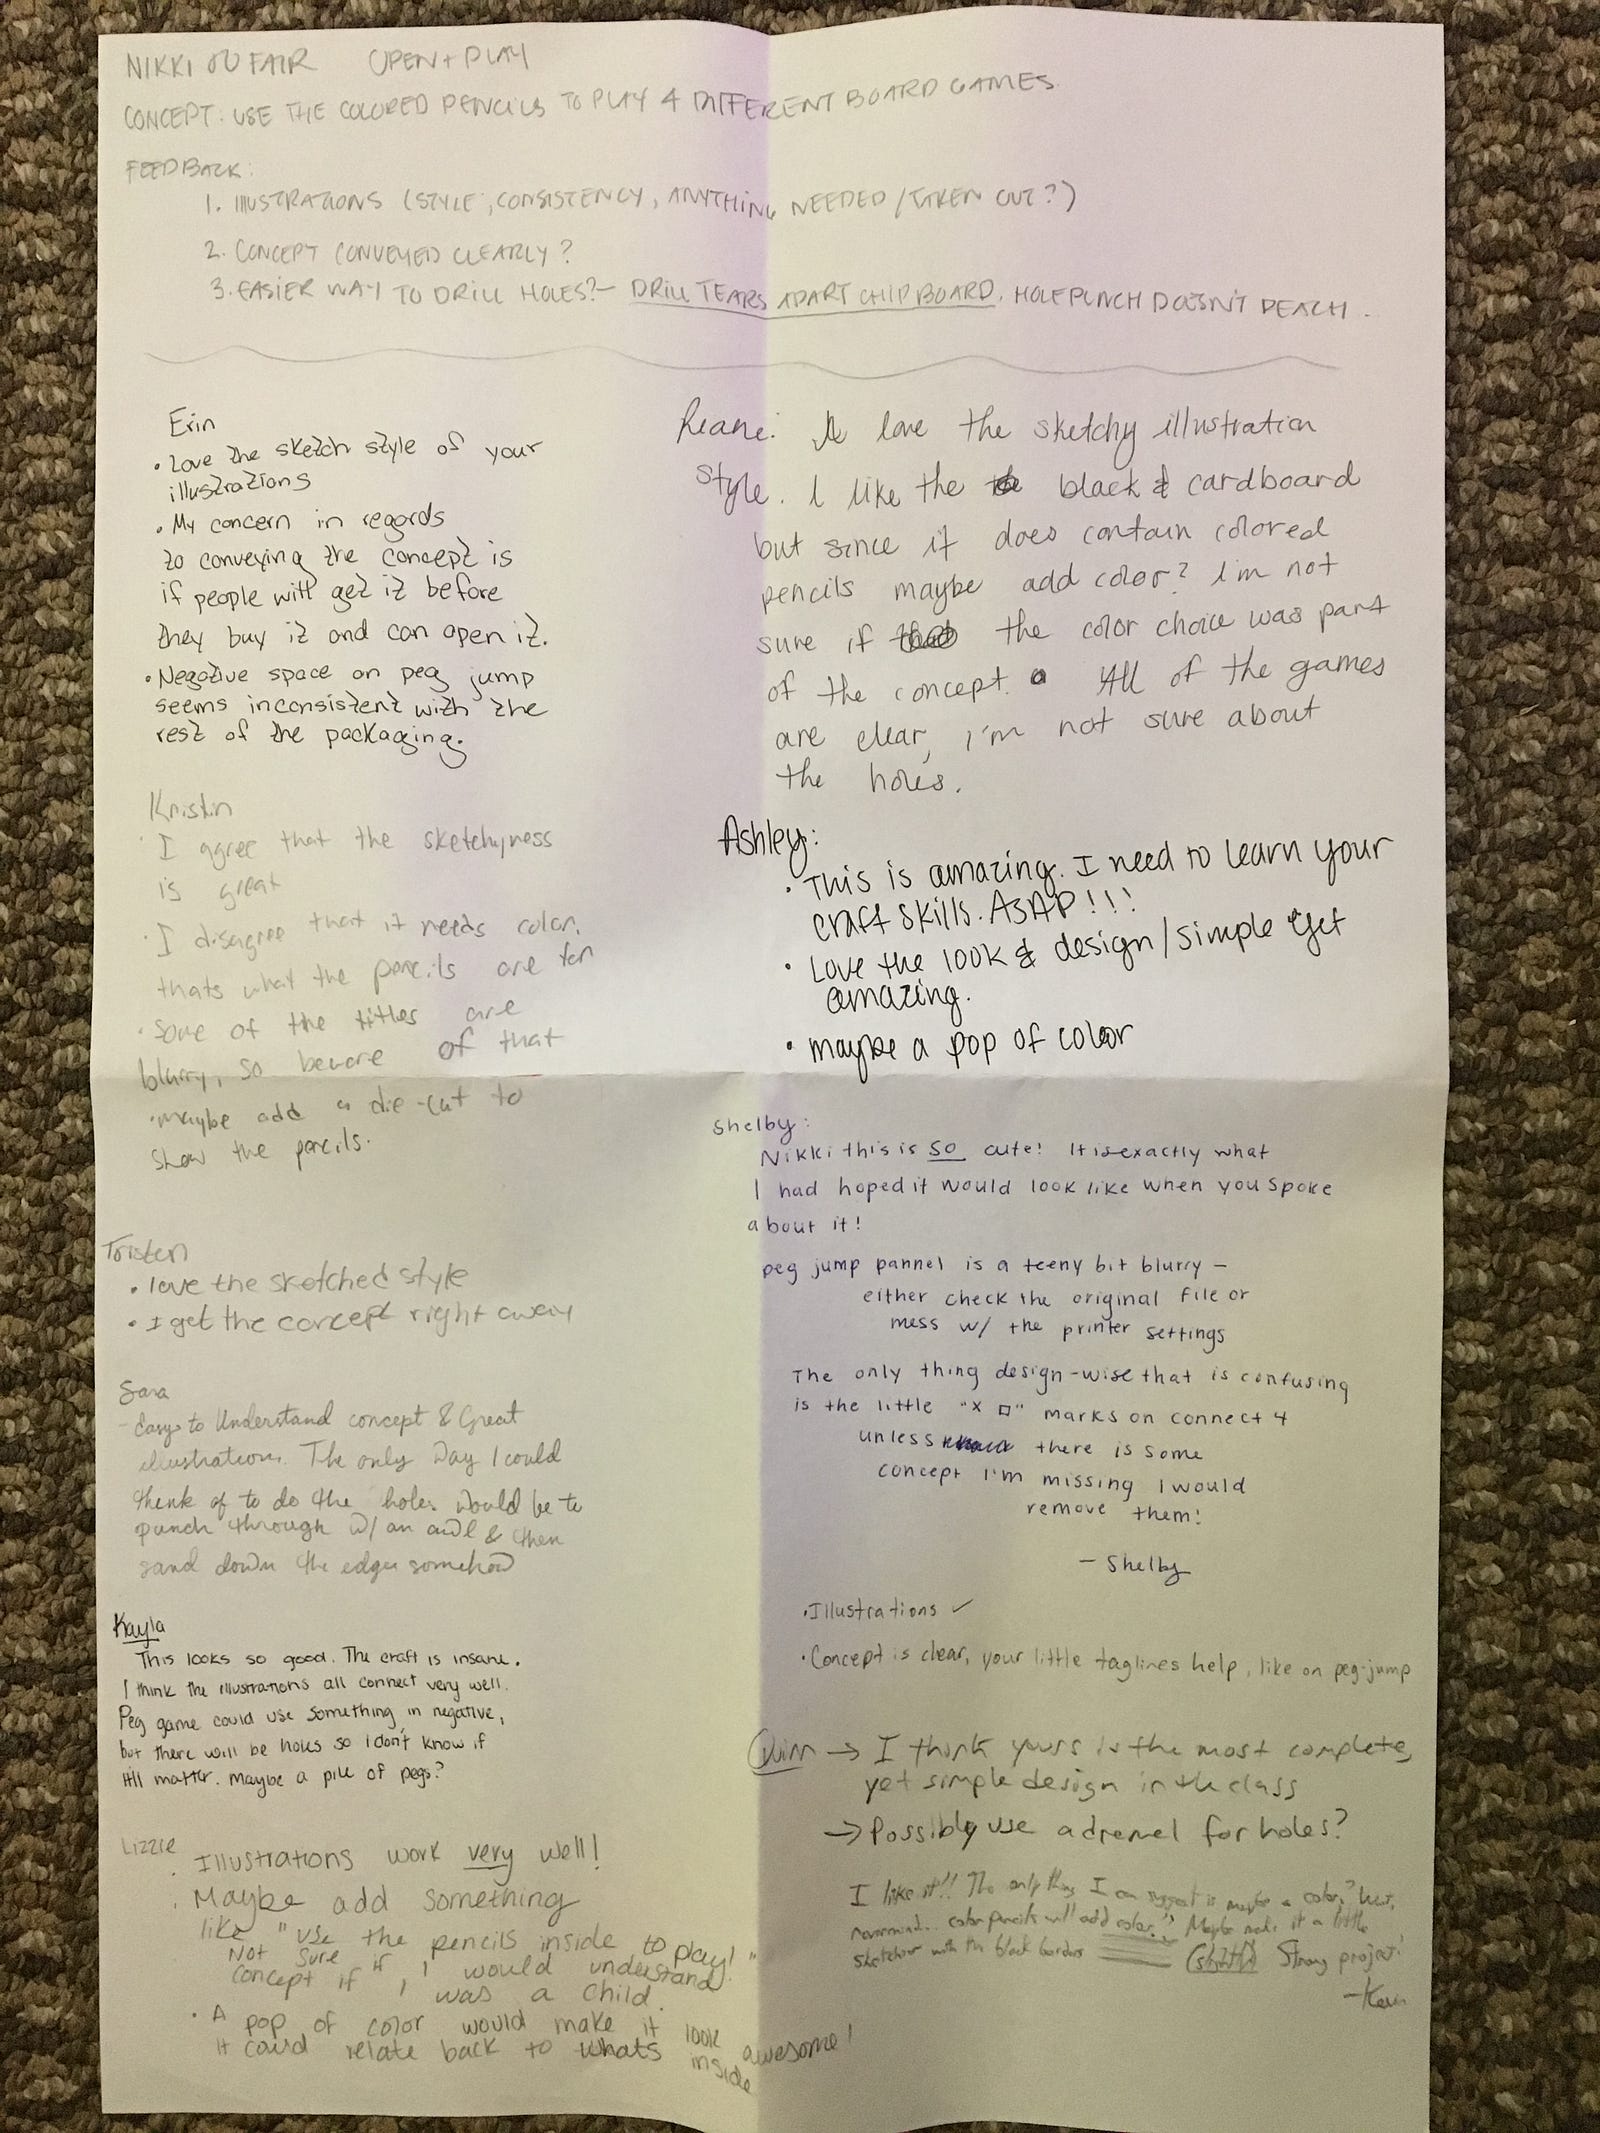 NIKKI DUFAIR OPEN + PLAY
CONCEPT: USE THE COLORED PENCILS TO PLAY 4 DIFFERENT BOARD GAMES.
FEEDBACK:
1. ILLUSTRATIONS (STYLE, CONSISTENCY, ANYTHING NEEDED/TAKEN OUT?)
2. CONCEPT CONVEYED CLEARLY?
3. EASIER WAY TO DRILL HOLES?- DRILL TEARS APART CHIPBOARD. HOLEPUNCH DOESN'T REACH.
Erin
• Love the sketch style of your
illustrations
• My concern in regards
to conveying the concept is
if people will get it before
they buy it and can open it.
• Negative space on peg jump
seems inconsistent with the
rest of the packaging.
Kristin
• I agree that the sketchyness
is great
• I disagree that it needs color,
thats what the pencils are for
• Some of the titles are
blurry, so beware of that
• maybe add a die-cut to
show the pencils.
Tristen
• love the sketched style
• I get the concept right away
Sara
- Easy to Understand concept & Great
illustrations. The only way I could
think of to do the holes would be to
punch through w/ an awl & then
sand down the edges somehow
Kayla
This looks so good. The craft is insane.
I think the illustrations all connect very well.
Peg game could use something in negative,
but there will be holes so I don't know if
it'll matter. Maybe a pile of pegs?
Lizzie
• Illustrations work very well!
• Maybe add something
like "use the pencils inside to play!"
Not sure if I would understand
concept if I was a child.
• A pop of color would make it look awesome!
It could relate back to whats inside
Reane: I love the sketchy illustration
style. I like the black & cardboard
but since it does contain colored
pencils maybe add color? I'm not
sure if the color choice was part
of the concept. All of the games
are clear, I'm not sure about
the holes.
Ashley:
• This is amazing. I need to learn your
craft skills. ASAP!!!
• Love the look & design/simple yet
amazing.
• maybe a pop of color
Shelby:
Nikki this is SO cute! It is exactly what
I had hoped it would look like when you spoke
about it!
peg jump pannel is a teeny bit blurry -
either check the original file or
mess w/ the printer settings
The only thing design-wise that is confusing
is the little "x □" marks on connect 4
unless there is some
concept I'm missing I would
remove them!
- Shelby
• Illustrations ✓
• Concept is clear, your little taglines help, like on peg-jump
Quinn → I think yours is the most complete,
yet simple design in the class
→ Possibly use a dremel for holes?
I like it!! The only thing I can suggest is maybe a color? but,
nevermind.. color pencils will add color." Maybe make it a little
sketchier with the black borders Strong project!
- Kevin